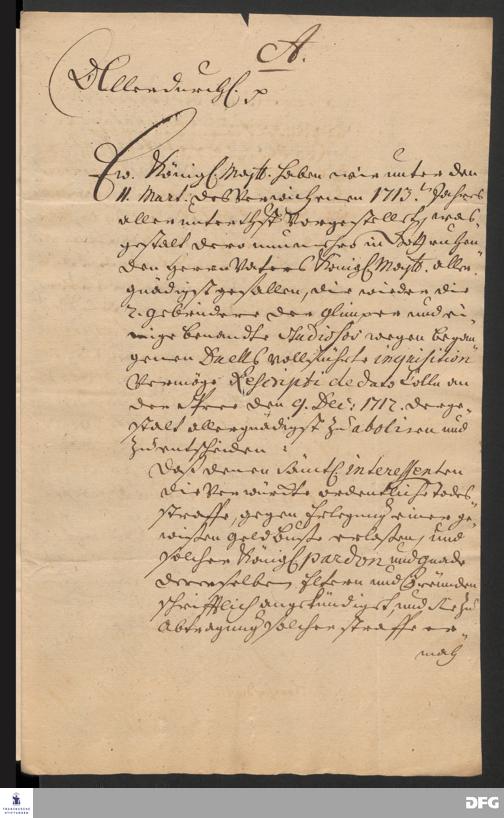 A.
Allerdurchl. p
Ew. Königl. Maytt. haben wir unter den
11. Mart. des verwichenen 1713.t Jahres
allerunterthst vorgestellet, was
gestalt dero nunmehro in Gott ruhen
den Herrn Vaters Königl. Maytt. aller
gnädigst gefallen, die wieder die
2. Gebrüdere der Glimper und ei
nige benandte Studiosos wegen began
genen Duells vollführte inquisition
vermöge Rescripti de dato Cölln an
der Spree den 9. Dec: 1712. derge-
stalt allergnädigst zu aboliren und
zu entscheiden:
Daß denen sämtl. interessenten
die verwürckte ordentliche Todes
straffe, gegen Erlegung einer ge-
wissen Geldbuße erlaßen, und
solcher Königl. pardon und Gnade
derenselben Eltern und Freünden
schrifftlich angekündiget, und sie zu
Abtragung solcher straffe er-
mah
FRANCKESCHE
STIFTUNGEN
DFG